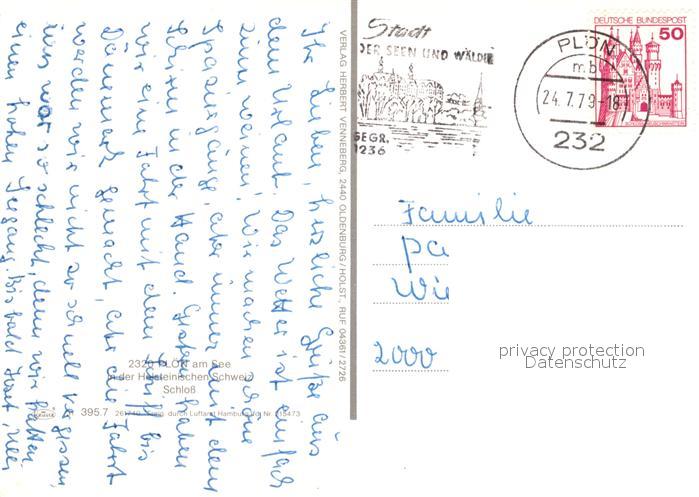 Ihr Lieben, herzliche Grüße aus
dem Urlaub. Das Wetter ist einfach
zum weinen. Wir machen schöne
Spaziergänge, aber immer mit dem
Schirm in der Hand. Gestern haben
wir eine Fahrt mit dem Schiff bis
Dänemark gemacht, aber die Fahrt
werden wir nicht so schnell vergessen,
uns war so schlecht, denn wir hatten
einen hohen Seegang. Bis bald
VERLAG HERBERT VENNEBERG, 2440 OLDENBURG/HOLST., RUF 04361/2726
2320 PLÖN am See
in der Holsteinischen Schweiz
Schloß
395.7
Stadt
DER SEEN UND WÄLDER
GEGR.
1236
PLÖN
mb
24.7.79-18
232
DEUTSCHE BUNDESPOST
50
Familie
Pa
Wi
2000
privacy protection
Datenschutz